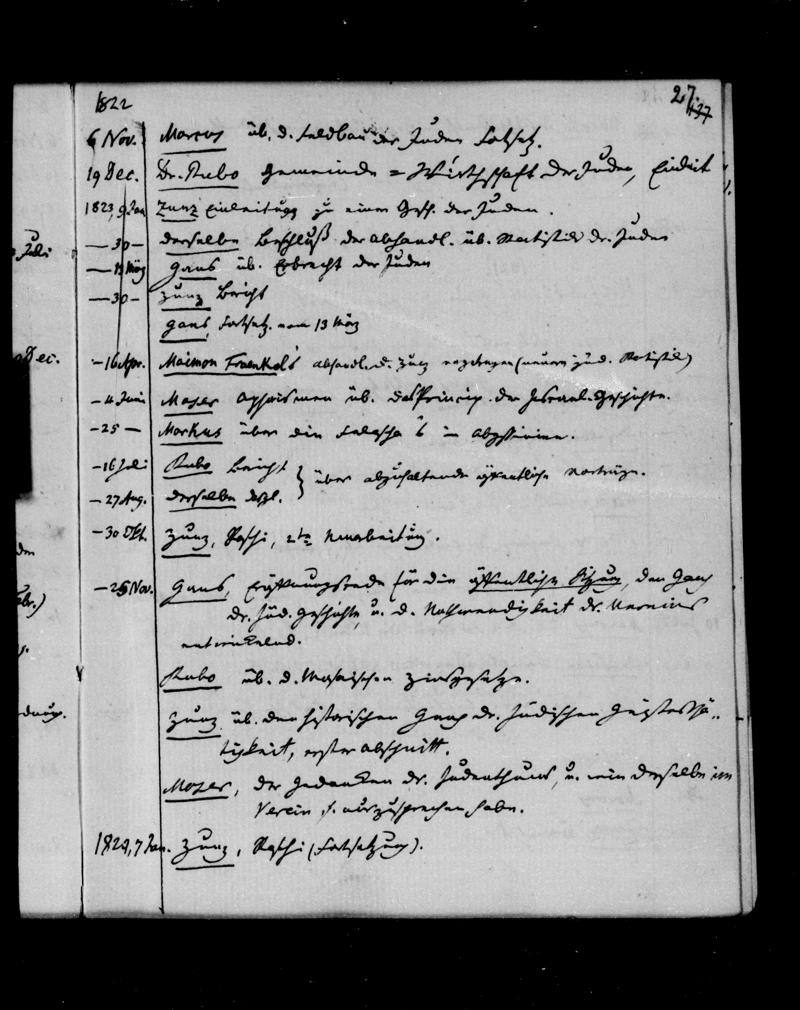 1822
27.
137
6 Nov. Marcus üb. d. Feldbau der Juden Fortsetz.
19 Dec. Dr. Rubo Gemeinde = Wirthschaft der Juden, Einleit
1823, 9 Jan Zunz Einleitung zu einer Gesch. der Juden.
— 30 — derselbe Beschluß der Abhandl. üb. Statistik der Juden
— 13 März Gans üb. Erbrecht der Juden
— 30 — Zunz Bericht
Gans, Fortsetz. vom 13 März
— 16 Apr. Maimon Fraenkel's Abhandl. d. Zunz vorgetragen (neuere jüd. Statistik)
— 4 Juni Moser Aphorismen üb. das Princip der Israel. Geschichte.
— 25 — Markus über die Falascha's in Abyssinien.
— 16 Juli Rubo Bericht
über abzuhaltende öffentliche Vorträge.
— 27 Aug. derselbe desgl.
— 30 Okt. Zunz, Raschi, 2te Bearbeitung.
— 25 Nov. Gans, Eröffnungsrede für die öffentliche Sitzung, den Gang
der jüd. Geschichte, u. d. Nothwendigkeit des Vereins
entwickelnd.
Rubo üb. d. Mosaischen Zinsgesetze.
Zunz üb. den historischen Gang der jüdischen Geistesthä-
tigkeit, erster Abschnitt.
Moser, der Gedanken des Judenthums, u. wie derselbe im
Verein s. auszusprechen habe.
1824, 7 Jan. Zunz, Raschi (Fortsetzung).
Juli
Dec.